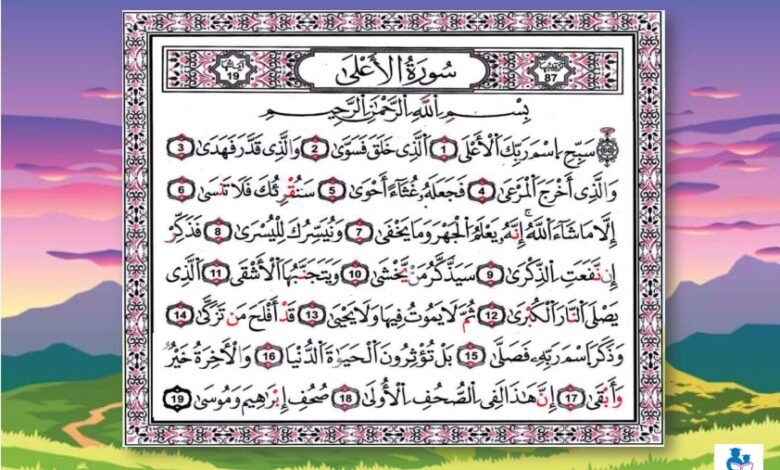 ترتيبها 87 سُورَةُ الأَعْلَىٰ آياتها 19
بِسْمِ اللَّهِ الرَّحْمَٰنِ الرَّحِيمِ
سَبِّحِ اسْمَ رَبِّكَ الْأَعْلَى 1 الَّذِي خَلَقَ فَسَوَّىٰ 2 وَالَّذِي قَدَّرَ فَهَدَىٰ 3
وَالَّذِي أَخْرَجَ الْمَرْعَىٰ 4 فَجَعَلَهُ غُثَاءً أَحْوَىٰ 5 سَنُقْرِئُكَ فَلَا تَنسَىٰ 6
إِلَّا مَا شَاءَ اللَّهُ ۚ إِنَّهُ يَعْلَمُ الْجَهْرَ وَمَا يَخْفَىٰ 7 وَنُيَسِّرُكَ لِلْيُسْرَىٰ 8 فَذَكِّرْ
إِن نَّفَعَتِ الذِّكْرَىٰ 9 سَيَذَّكَّرُ مَن يَخْشَىٰ 10 وَيَتَجَنَّبُهَا الْأَشْقَى 11 الَّذِي
يَصْلَى النَّارَ الْكُبْرَىٰ 12 ثُمَّ لَا يَمُوتُ فِيهَا وَلَا يَحْيَىٰ 13 قَدْ أَفْلَحَ مَن تَزَكَّىٰ 14
وَذَكَرَ اسْمَ رَبِّهِ فَصَلَّىٰ 15 بَلْ تُؤْثِرُونَ الْحَيَاةَ الدُّنْيَا 16 وَالْآخِرَةُ خَيْرٌ
وَأَبْقَىٰ 17 إِنَّ هَٰذَا لَفِي الصُّحُفِ الْأُولَىٰ 18 صُحُفِ إِبْرَاهِيمَ وَمُوسَىٰ 19